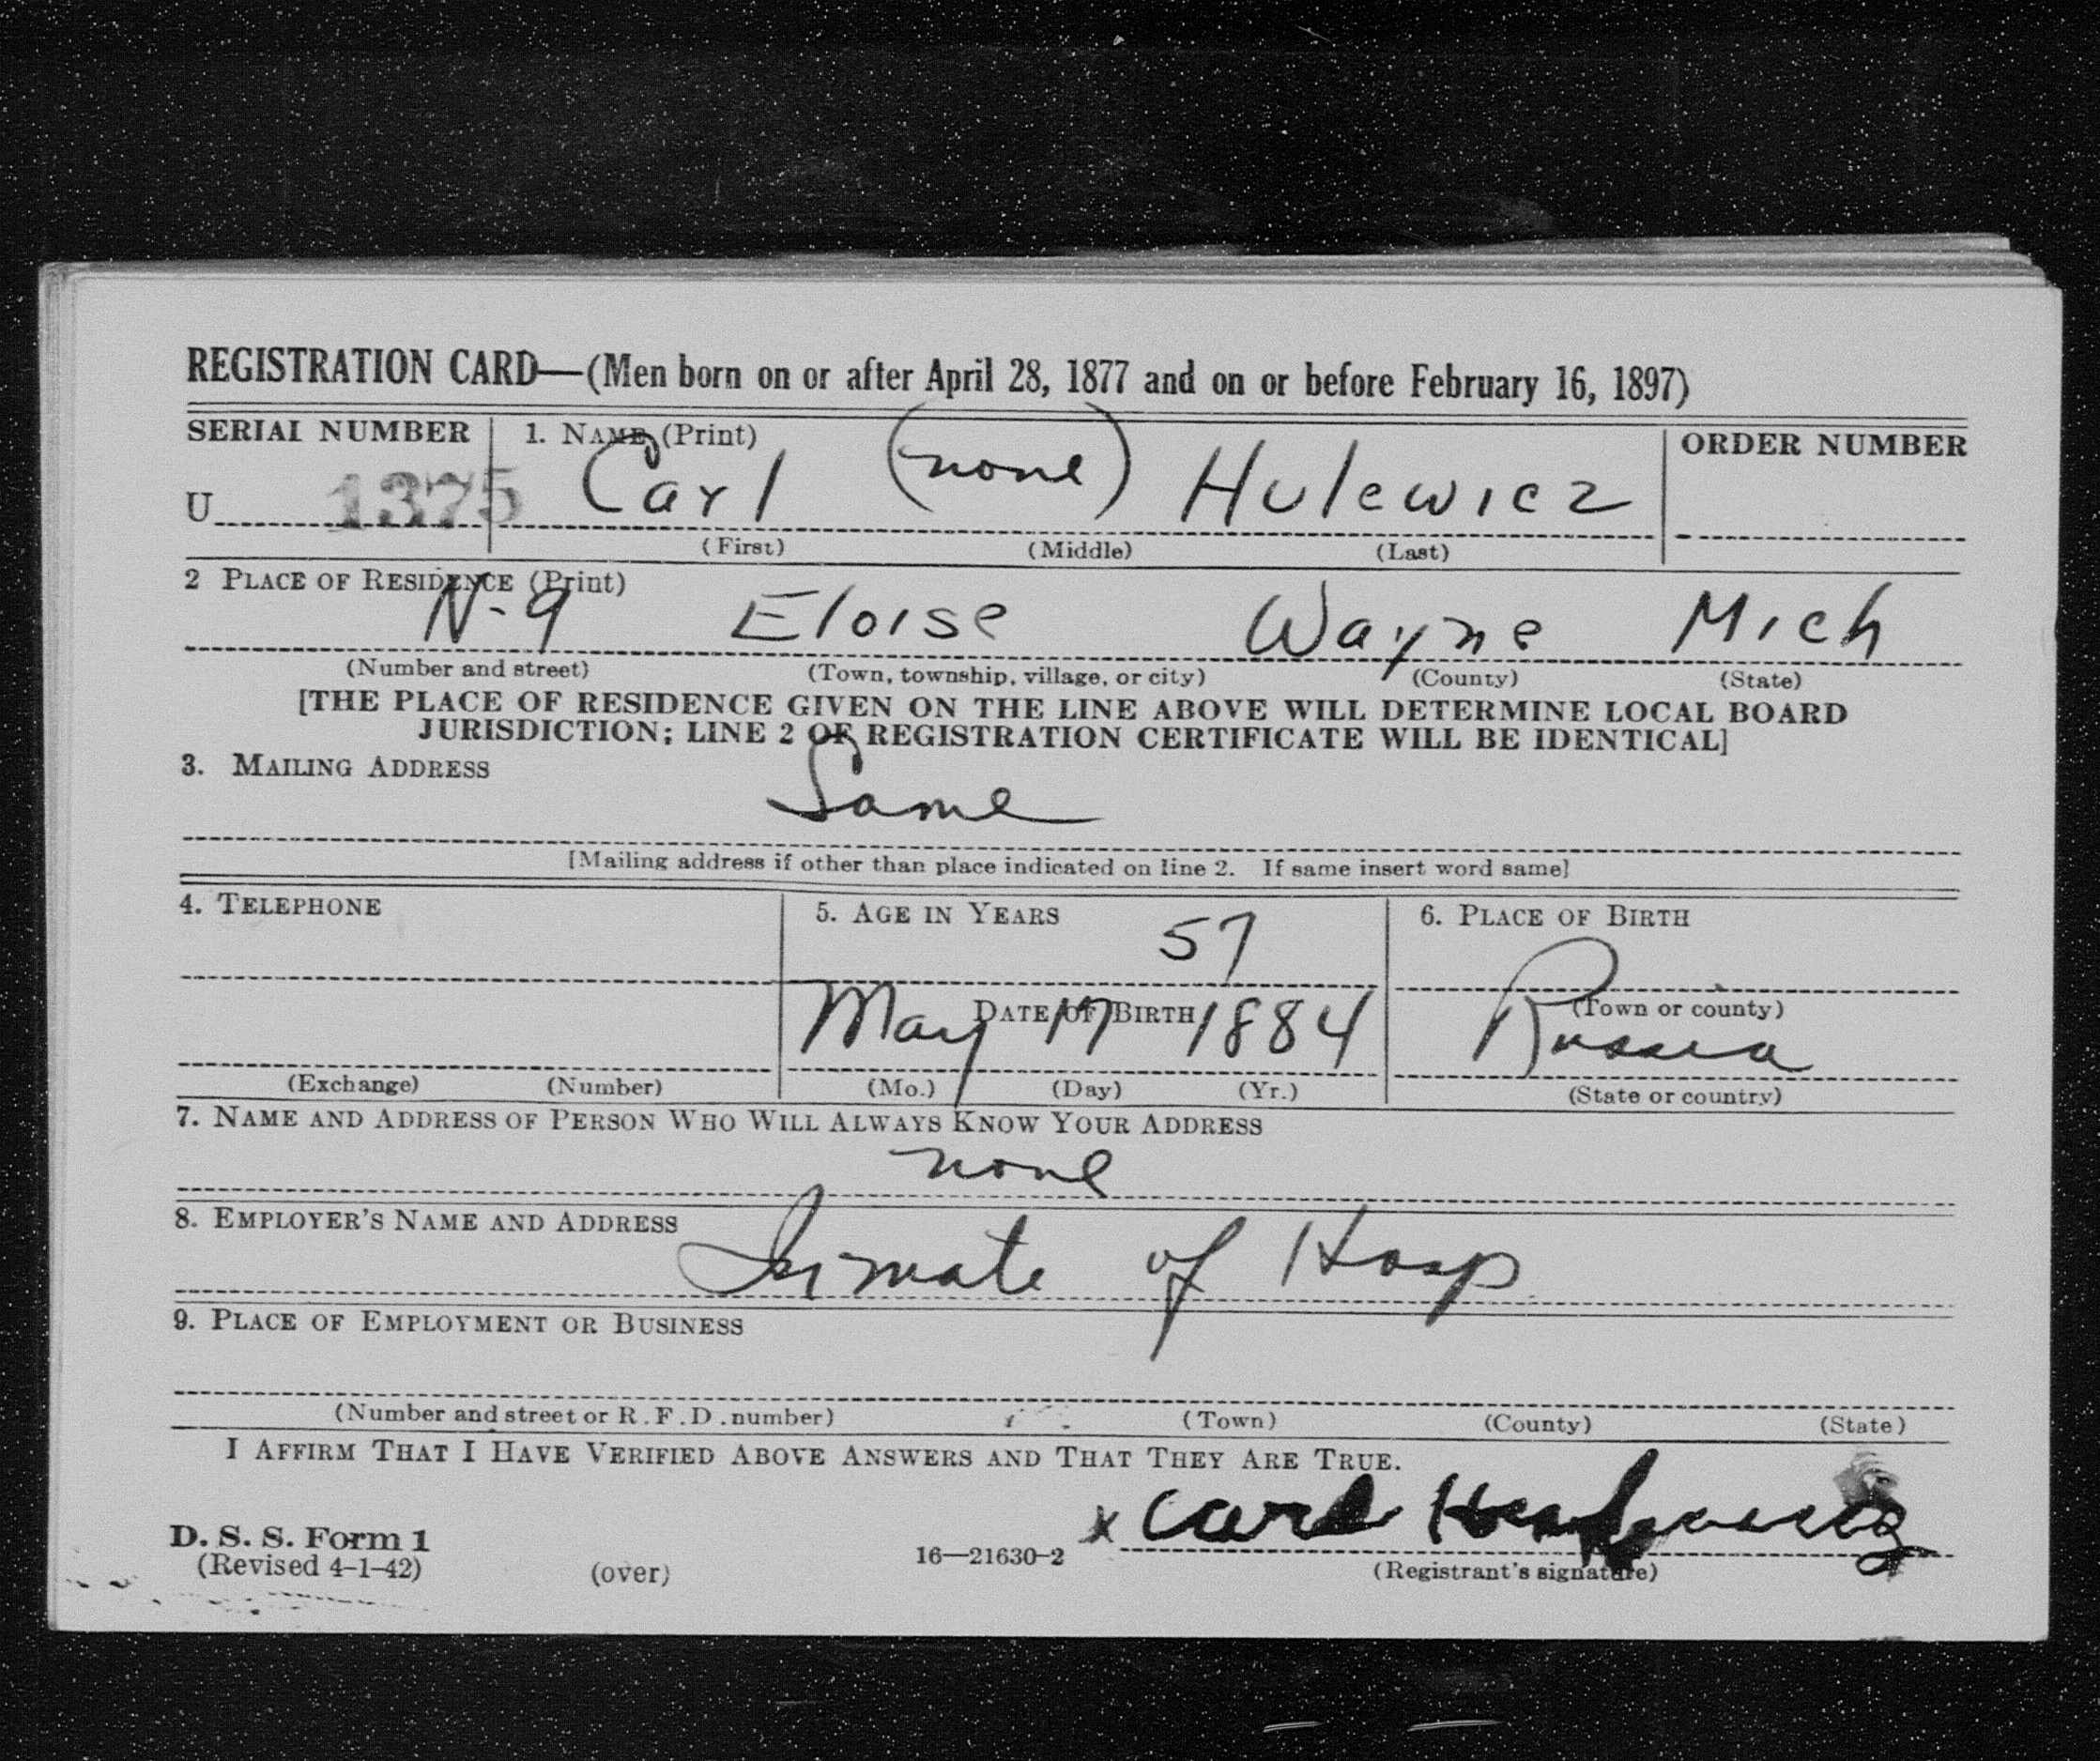 REGISTRATION CARD—(Men born on or after April 28, 1877 and on or before February 16, 1897)
SERIAL NUMBER 1. NAME (Print) ORDER NUMBER
U 1375 Carl (none) Hulewicz
(First) (Middle) (Last)
2 PLACE OF RESIDENCE (Print)
N-9 Eloise Wayne Mich
(Number and street) (Town, township, village, or city) (County) (State)
[THE PLACE OF RESIDENCE GIVEN ON THE LINE ABOVE WILL DETERMINE LOCAL BOARD
JURISDICTION; LINE 2 OF REGISTRATION CERTIFICATE WILL BE IDENTICAL]
3. MAILING ADDRESS
Same
[Mailing address if other than place indicated on line 2. If same insert word same]
4. TELEPHONE 5. AGE IN YEARS 6. PLACE OF BIRTH
57
DATE OF BIRTH (Town or county)
May 17 1884 Russia
(Exchange) (Number) (Mo.) (Day) (Yr.) (State or country)
7. NAME AND ADDRESS OF PERSON WHO WILL ALWAYS KNOW YOUR ADDRESS
none
8. EMPLOYER'S NAME AND ADDRESS
Inmate of Hosp
9. PLACE OF EMPLOYMENT OR BUSINESS
(Number and street or R.F.D. number) (Town) (County) (State)
I AFFIRM THAT I HAVE VERIFIED ABOVE ANSWERS AND THAT THEY ARE TRUE.
x Carl
D. S. S. Form 1
(Revised 4-1-42) (over) 16—21630-2 (Registrant's signature)